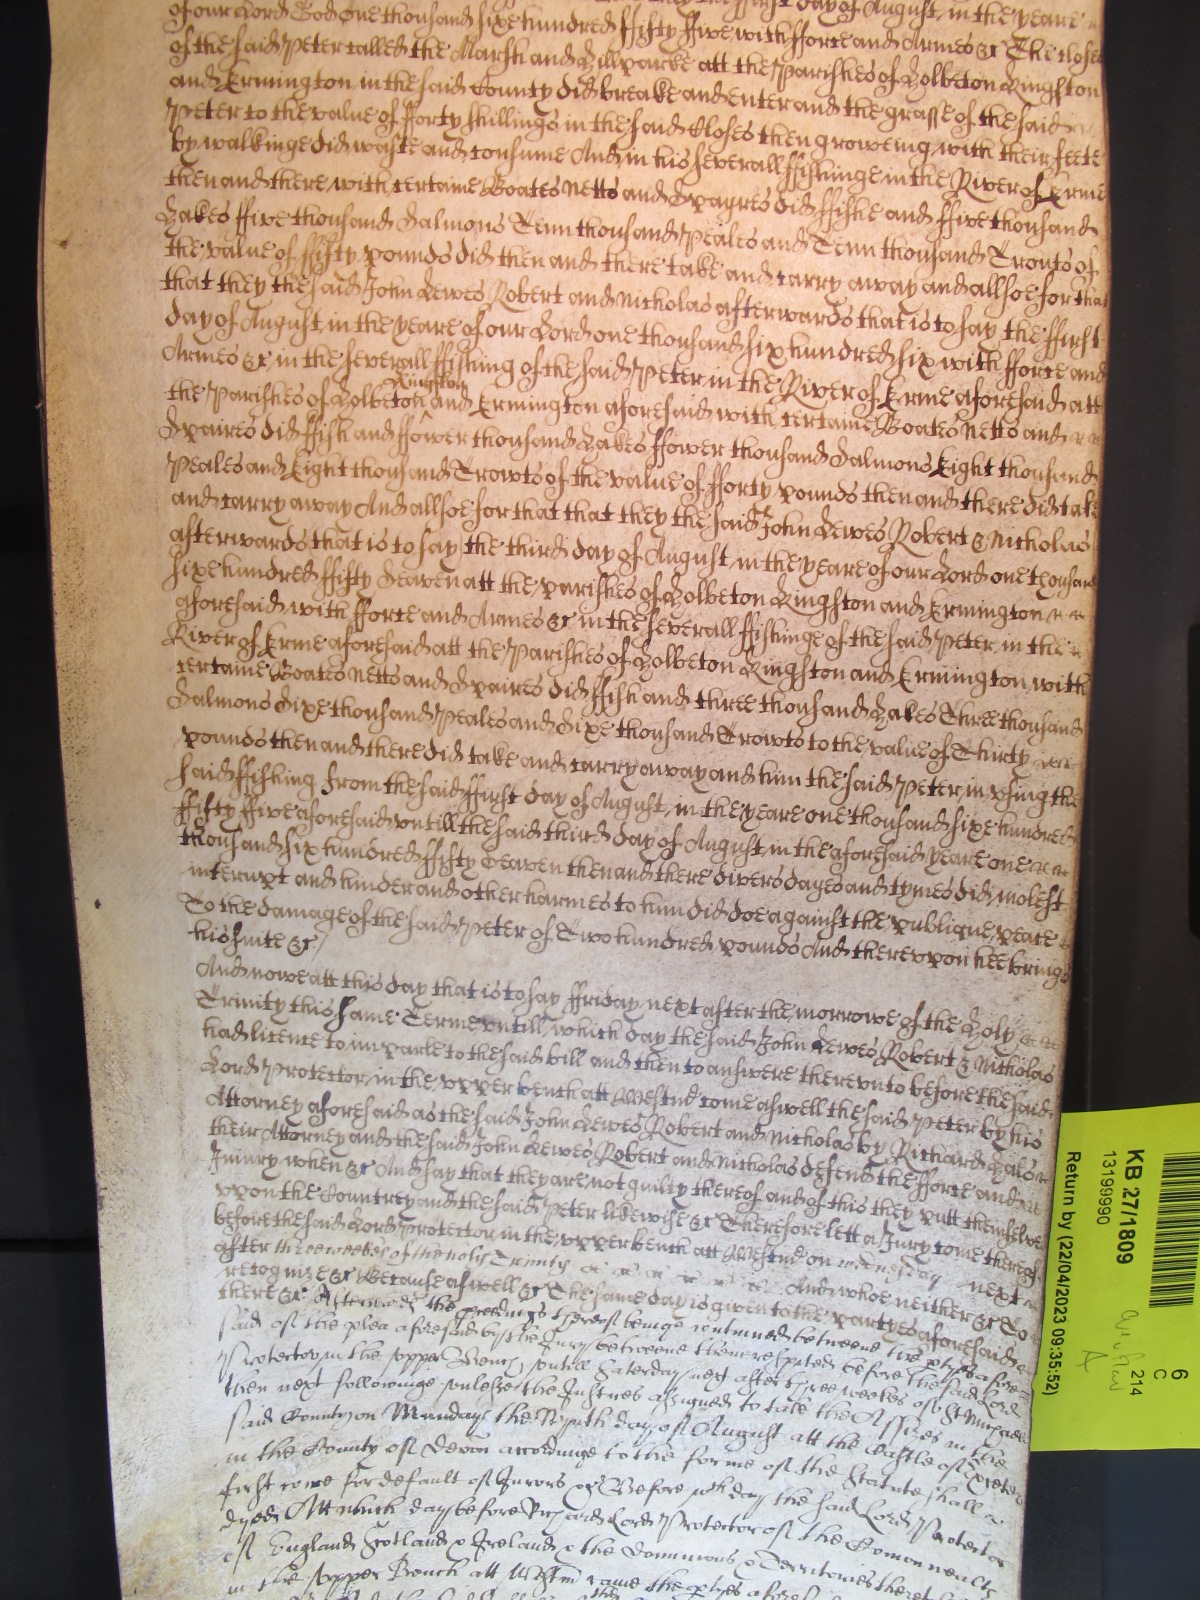 of our Lord God one thousand sixe hundred ffifty ffive with fforce and Armes &c The closes
of the said Peter called the Marsh and Hillparke att the Parishes of Holbeton Kingston
and Ermington in the said County did breake and enter and the grasse of the said
Peter to the value of fforty shillings in the said Closes then groweing with their feete
by walkinge did waste and consume And in his severall ffishinge in the River of Erme
then and there with certaine Boates Netts and Spayres did ffishe and ffive thousand
Hakes ffive thousand Salmons Tenn thousand Peales and Tenn thousand Trouts of
the value of ffifty pounds did then and there take and carry away and allsoe for that
that they the said John Lewes Robert and Nicholas afterwards that is to say the ffirst
day of August in the yeare of our Lord one thousand six hundred six with fforce and
Armes &c in the severall ffishing of the said Peter in the River of Erme aforesaid att
the Parishes of Holbeton Kingston and Ermington aforesaid with certaine Boates Netts and
Spaires did ffish and ffower thousand Hakes ffower thousand Salmons Eight thousand
Peales and Eight thousand Trowts of the value of fforty pounds then and there did take
and carry away And allsoe for that that they the said John Lewes Robert & Nicholas
afterwards that is to say the third day of August in the yeare of our Lord one thousand
sixe hundred ffifty seaven att the parishes of Holbeton Kingston and Ermington
aforesaid with fforce and Armes &c in the severall ffishinge of the said Peter in the
River of Erme aforesaid att the Parishes of Holbeton Kingston and Ermington with
certaine Boates Netts and Spaires did ffish and three thousand Hakes Three thousand
Salmons Sixe thousand Peales and Sixe thousand Trowts to the value of Thirty
pounds then and there did take and carry away and him the said Peter in using the
said ffishing from the said ffirst day of August in the yeare one thousand sixe hundred
ffifty ffive aforesaid untill the said third day of August in the aforesaid yeare one
thousand six hundred ffifty seaven then and there divers dayes and tymes did molest
interupt and hinder and other harmes to him did doe against the publique peace
To the damage of the said Peter of Two hundred pounds And thereupon hee brings
his suite &c /
And nowe att this day that is to say ffriday next after the morrowe of the Holy
Trinity this same Terme untill which day the said John Lewes Robert & Nicholas
had licence to imparle to the said bill and then to answere thereunto before the said
Lord Protector in the upper bench att Westmr come aswell the said Peter by his
Attorney aforesaid as the said John Lewes Robert and Nicholas by Richard Halse
their Attorney and the said John Lewes Robert and Nicholas defend the fforce and
Iniury when &c And say that they are not guilty thereof and of this they putt themselves
upon the Countrey and the said Peter likewise &c Therefore lett a Jury come thereof
before the said Lord Protector in the upper bench att Westmr on wednesday next
after three weekes of the holy Trinity And whoe neither &c To
recognize &c Because aswell &c The same day is given to the partyes aforesaid
there &c Afterwards the proceedings thereof beinge continued betweene the ptyes afore
said of the plea aforesaid by the Jury betweene them respited before the said Lord
Protector in the Upper Bench untill Saterday next after three weekes of St Michaell
then next followinge unlesse the Justices assigned to take the Assizes in the
said County on Munday the day of August att the Castle of Exeter
in the County of Devon accordinge to the forme of the Statute shall
first come for default of Jurors &c Before which day the said Lord Protector
dyed Att which day before Richard Lord Protector of the Comonwealth
of England Scotland & Ireland & the Dominions & Territories
in the Upper Bench att Westmr came the ptyes aforesd
KB 27/1809
13199990
Return by (22/04/2023 09:35:52)
6
C
214